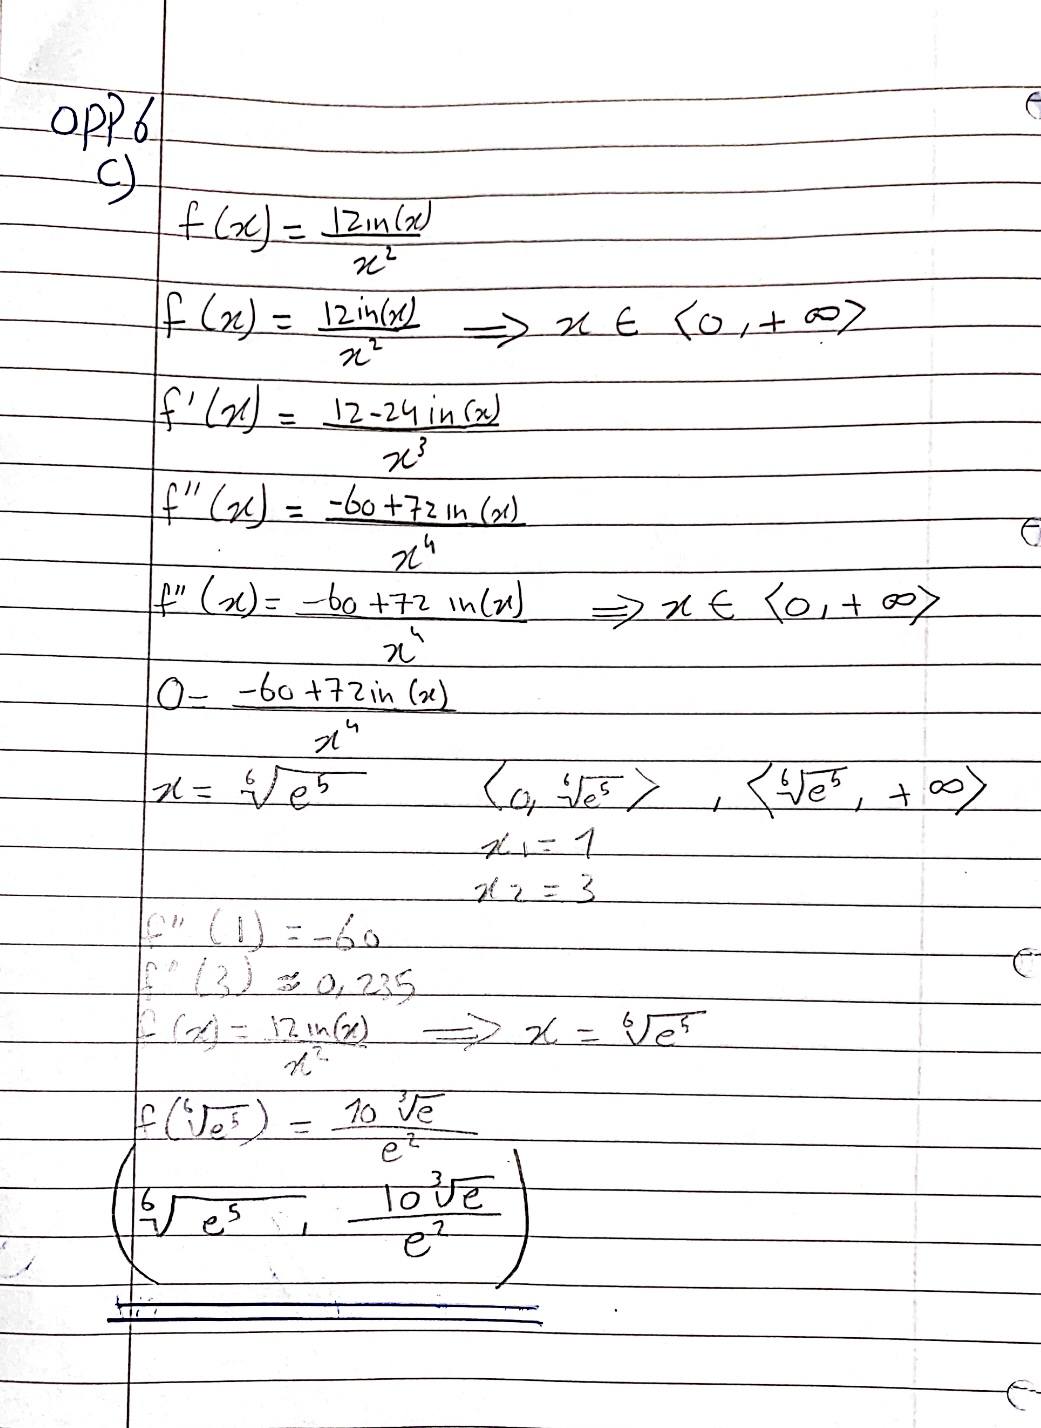 OPP 6
c)
f(x) = 12in(x) / x²
f(x) = 12in(x) / x² ⇒ x ∈ ⟨0, +∞⟩
f'(x) = 12-24in(x) / x³
f''(x) = -60+72in(x) / x⁴
f''(x) = -60+72in(x) / x⁴ ⇒ x ∈ ⟨0, +∞⟩
0 = -60+72in(x) / x⁴
x = ⁶√e⁵ ⟨0, ⁶√e⁵⟩, ⟨⁶√e⁵, +∞⟩
x₁ = 1
x₂ = 3
f''(1) = -60
f''(3) ≈ 0,235
f(x) = 12in(x) / x² ⇒ x = ⁶√e⁵
f(⁶√e⁵) = 10 ³√e / e²
(⁶√e⁵, 10³√e / e²)